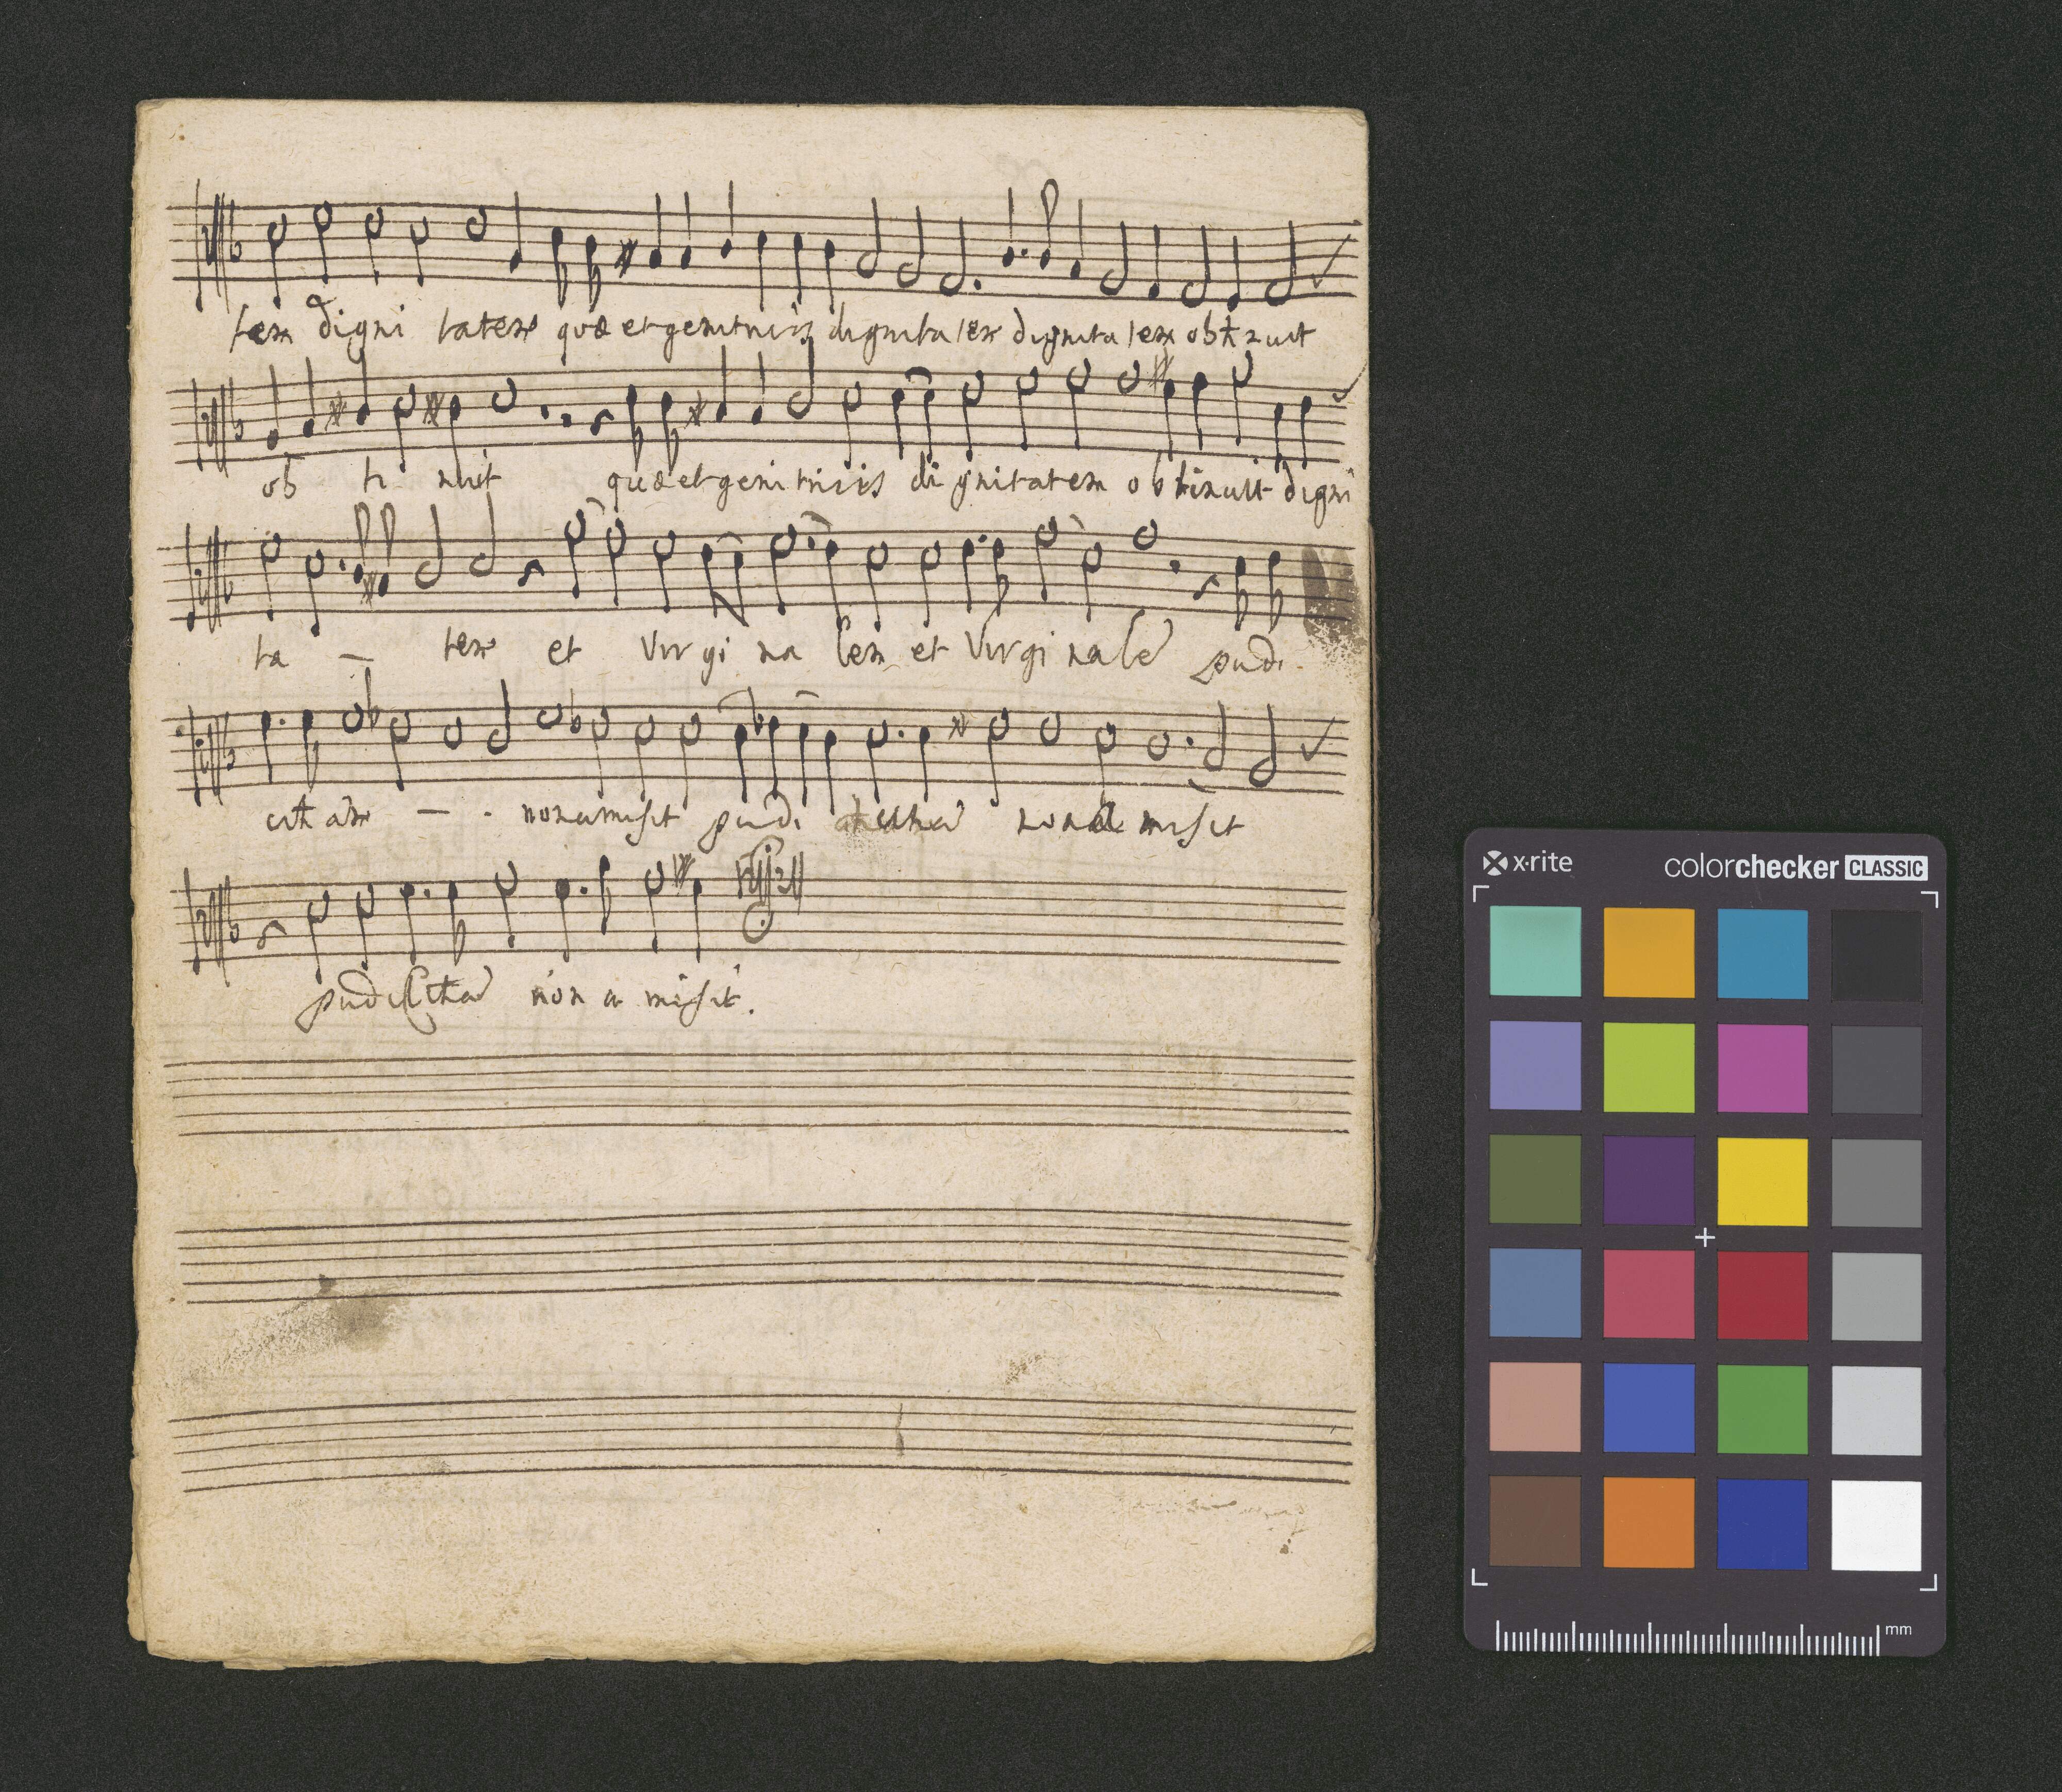 tem digni tatem quæ et genitricis dignitatem dignitatem obtinuit
ob ti nuit quæ et geni tricis di gnitatem obtinuit digni
ta — tem et Virgi na lem et Virgi nale pudi-
citiam — - non amisit pudi citia non a misit
pudicitia non a misit.
x-rite
colorchecker CLASSIC
mm